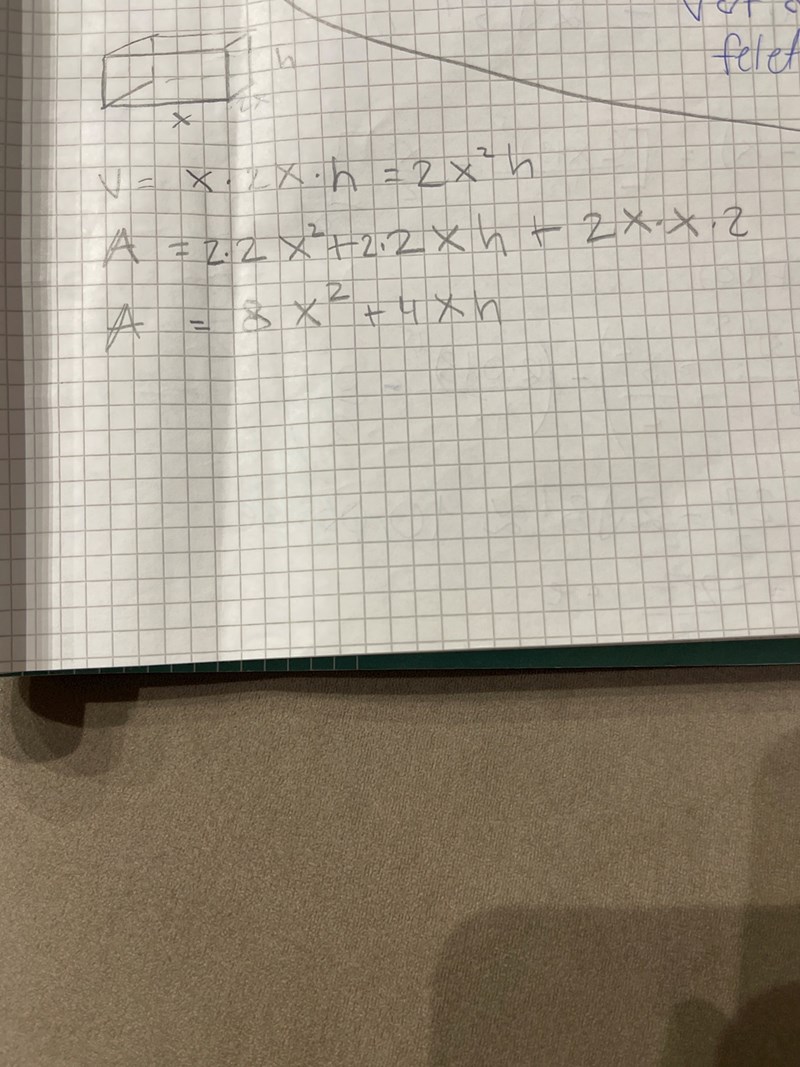 felet
h
2x
x
V = x·2x·h = 2x²h
A = 2·2x²+2·2xh + 2x·x·2
A = 8x²+4xh